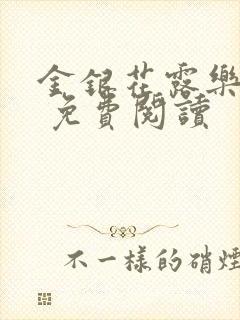 金銀花露樂
免費閱讀
不一樣的硝煙